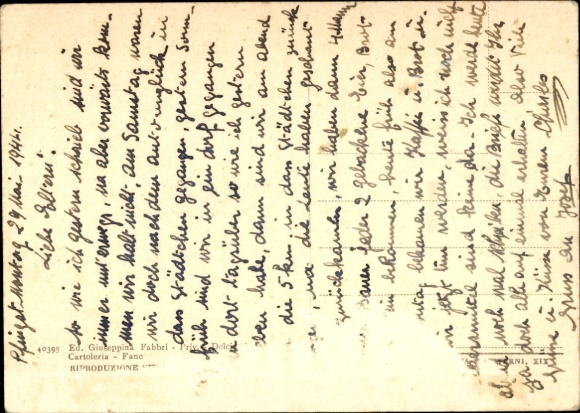 Pfingstmontag 29 Mai. 1944.
Liebe Eltern!
so wie ich gestern schrieb sind wir
immer unterwegs, na aber vorwärts kom-
men wir halt nicht, am Samstag waren
wir doch nach dem auto unglück in
dass Städtchen gegangen, gestern Sonn-
früh sind wir in ein dorf gegangen
u dort tagsüber so wie ich gestern
eben habe, dann sind wir am abend
die 5 km. in dass Städtchen zurück
na die Leute haben geschaut
zurückkamen, wir haben dann
Bauer jeder 2 gebackene Eier, Brot
bekommen, heute früh also am
ntag bekamen wir Kaffee u. Brot u.
wir jetzt tun werden, weiss ich noch nicht
sind keine da. Ich werde heute
noch mal schicken die Briefe werdet Ihr
ja doch alle auf einmal erhalten. also Viele
Grüsse u. Küsse von Eurem Charles
Gruss an Josef
40395 Ed. Giuseppina Fabbri - Dolci
Cartoleria - Fano
RIPRODUZIONE
RNI, XIX